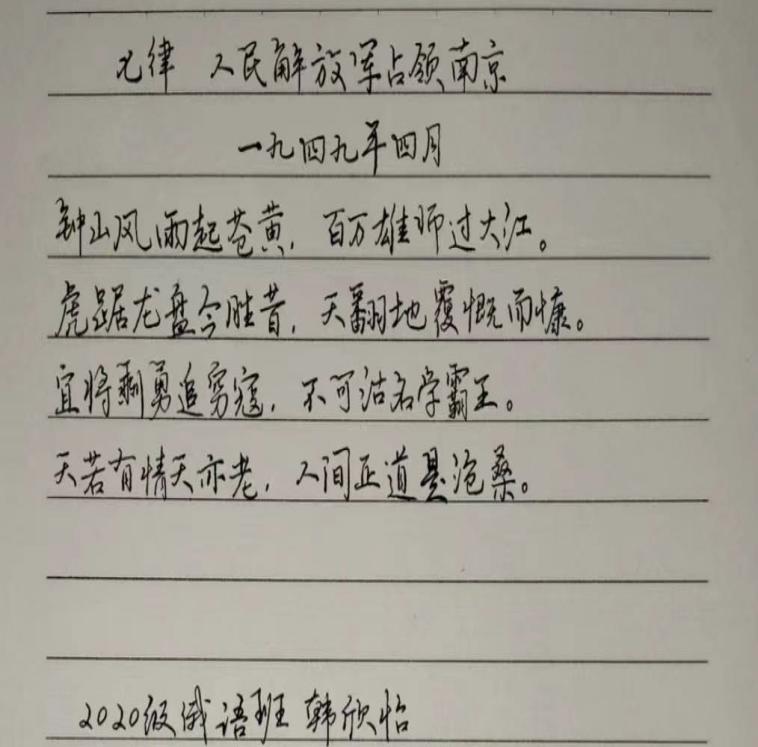 七律 人民解放军占领南京
一九四九年四月
钟山风雨起苍黄，百万雄师过大江。
虎踞龙盘今胜昔，天翻地覆慨而慷。
宜将剩勇追穷寇，不可沽名学霸王。
天若有情天亦老，人间正道是沧桑。
2020级俄语班 韩欣怡